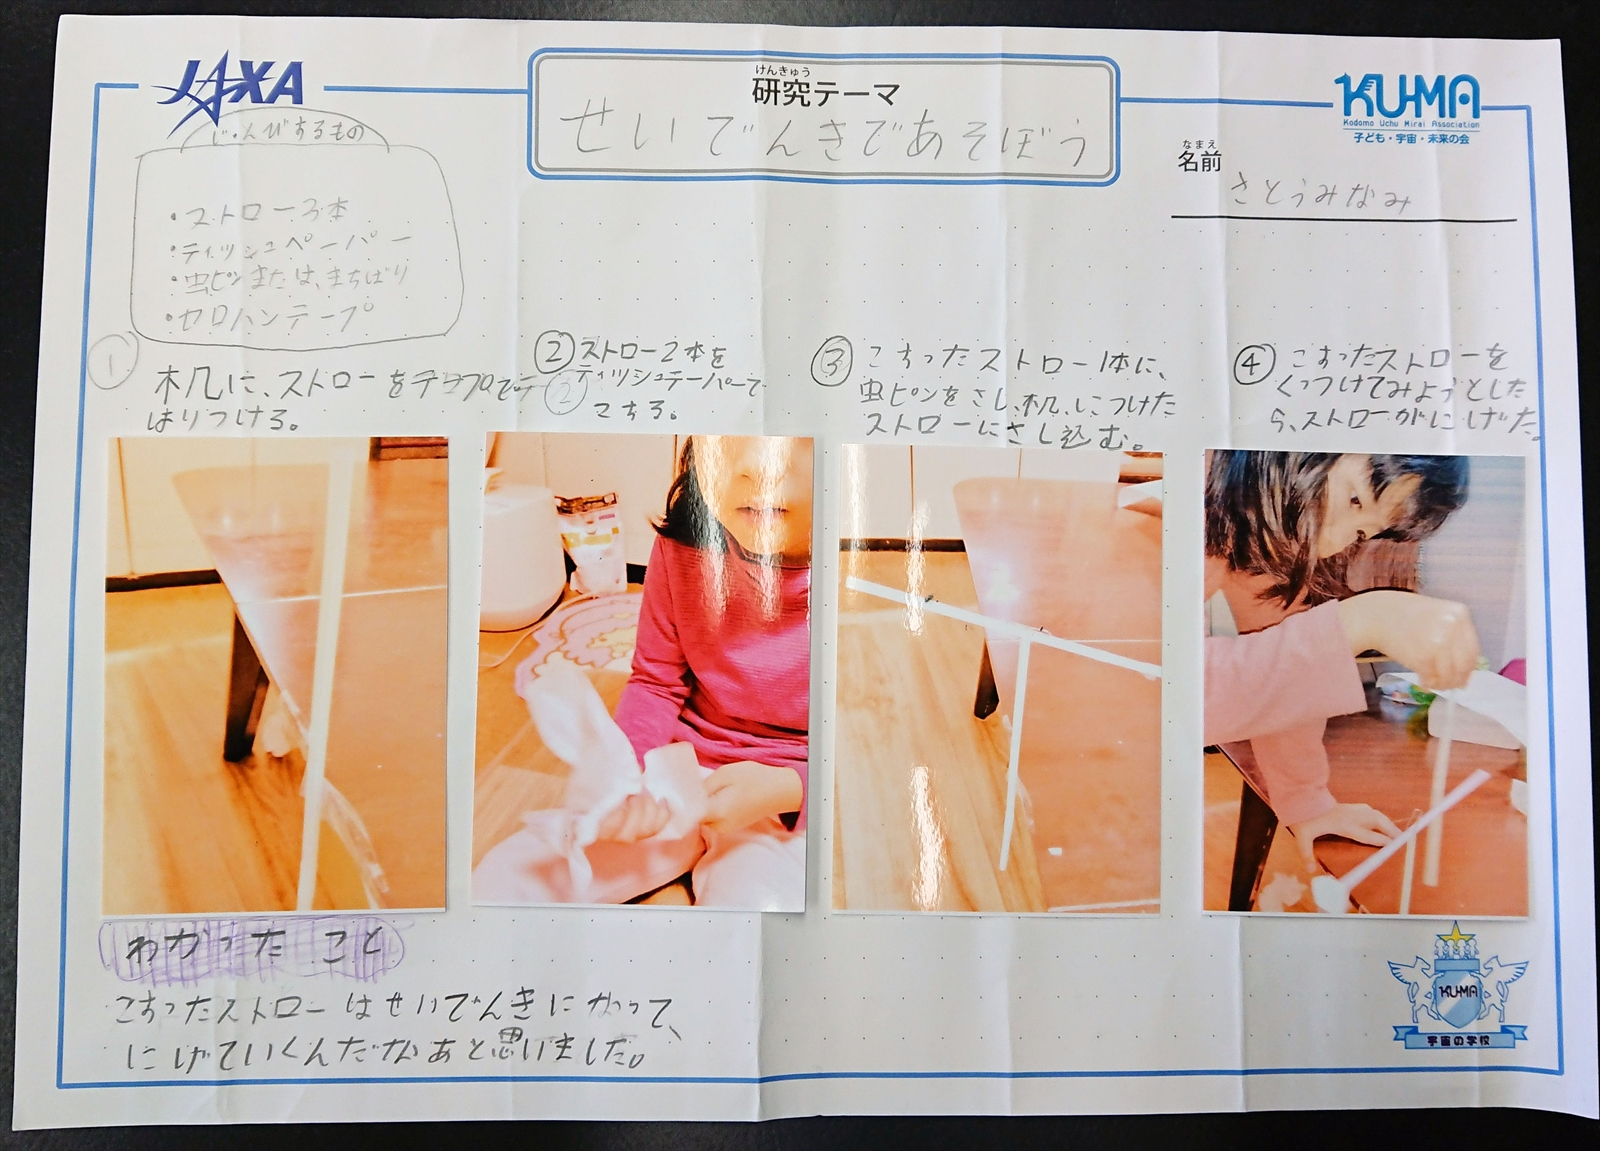 JAXA
けんきゅう
研究テーマ
せいでんきであそぼう
KU-MA
Kodomo Uchu Mirai Association
子ども・宇宙・未来の会
なまえ
名前
さとうみなみ
じゅんびするもの
・ストロー3本
・ティッシュペーパー
・虫ピンまたは、まちばり
・セロハンテープ
①
机に、ストローをテープで
はりつける。
②ストロー2本を
ティッシュテーパーで
こする。
③こすったストロー1本に、
虫ピンをさし、机につけた
ストローにさし込む。
④こすったストローを
くっつけてみようとした
ら、ストローがにげた。
わかったこと
こすったストローはせいでんきになって、
にげていくんだなあと思いました。
KU-MA
宇宙の学校